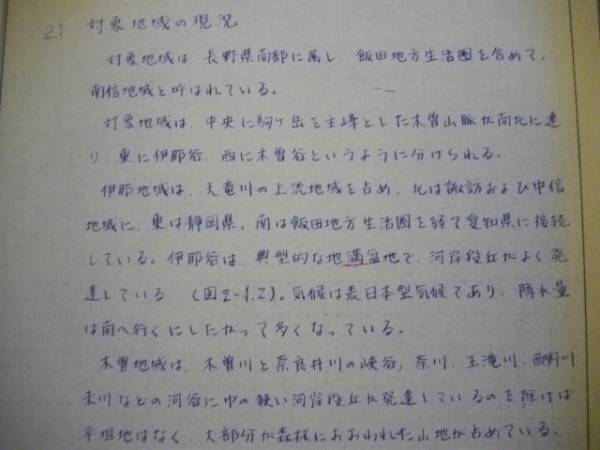 2.1 対象地域の現況
対象地域は、長野県南部に属し、飯田地方生活圏を含めて、
南信地域と呼ばれている。
対象地域は、中央に駒ヶ岳を主峰とした木曽山脈が南北に連
り、東に伊那谷、西に木曽谷というように分けられる。
伊那地域は、天竜川の上流地域を占め、北は諏訪および中信
地域に、東は静岡県、南は飯田地方生活圏を経て愛知県に接続
している。伊那谷は、典型的な地溝盆地で、河岸段丘がよく発
達している (図2-1,2)。気候は表日本型気候であり、降水量
は南へ行くにしたがって多くなっている。
木曽地域は、木曽川と奈良井川の峡谷、奈川、王滝川、西野川
末川などの河谷に巾の狭い河岸段丘が発達しているのを除けば
平坦地はなく、大部分が森林におおわれた山地が占めている。